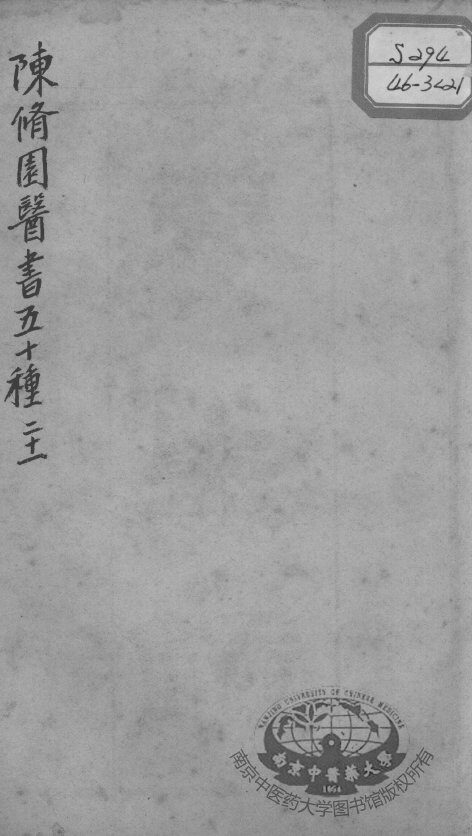 陳脩園醫書五十種 二十一
S294
46-3<21
NANJING UNIVERSITY OF CHINESE MEDICINE
南京中醫藥大學
1954
南京中医药大学图书馆版权所有